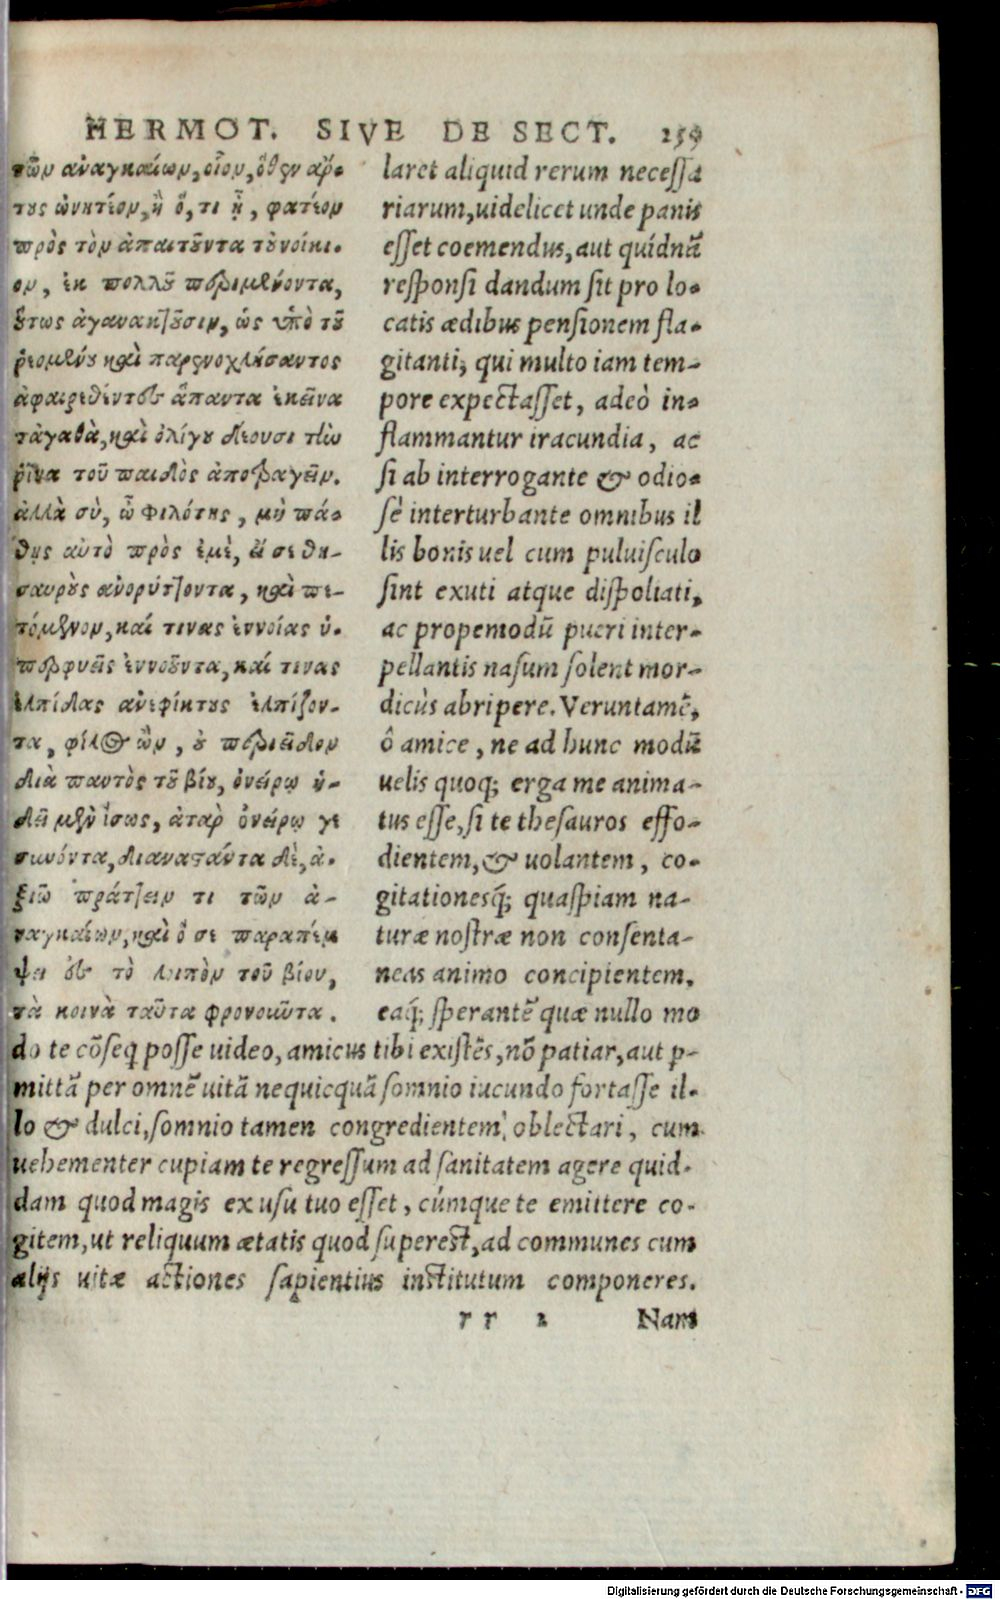 HERMOT. SIVE DE SECT. 259
τῶν ἀναγκαίων, οἷον, ὅθεν ἄρ-
τους ὠνητέον, ἢ ὅ, τι ᾖ, φατέον
πρὸς τὸν ἀπαιτοῦντα τοὐνοίκι-
ον, ἐκ πολλοῦ περιμένοντα,
οὕτως ἀγανακτοῦσιν, ὡς ὑπὸ τοῦ
ῥεομένου καὶ παρενοχλήσαντος
ἀφαιρεθέντες ἅπαντα ἐκεῖνα
τἀγαθὰ, καὶ ὀλίγου δέουσι τὴν
ῥῖνα τοῦ παιδὸς ἀποτραγεῖν.
ἀλλὰ σὺ, ὦ φιλότης, μὴ πά-
θῃς αὐτὸ πρὸς ἐμὲ, εἴ σε θη-
σαυροὺς ἀνορύττοντα, καὶ πε-
τόμενον, καί τινας ἐννοίας ὑ-
περφυεῖς ἐννοοῦντα, καί τινας
ἐλπίδας ἀνεφίκτους ἐλπίζον-
τα, φίλος ὢν, οὐ περιεῖδον
διὰ παντὸς τοῦ βίου, ὀνείρῳ ἡ-
δεῖ μὲν ἴσως, ἀτὰρ ὀνείρῳ γε
συνόντα, διαναστάντα δὲ, ἀ-
ξιῶ πράττειν τι τῶν ἀ-
ναγκαίων, καὶ ὅ σε παραπέμ
ψει ἐς τὸ λειπὸν τοῦ βίου,
τὰ κοινὰ ταῦτα φρονοῦντα.
laret aliquid rerum necessa
riarum, uidelicet unde panis
esset coemendus, aut quídnã
responsi dandum sit pro lo-
catis ædibus pensionem fla-
gitanti, qui multo iam tem-
pore expectasset, adeò in-
flammantur iracundia, ac
si ab interrogante & odio-
sè interturbante omnibus il
lis bonis uel cum puluisculo
sint exuti atque dispoliati,
ac propemodũ pueri inter-
pellantis nasum solent mor-
dicùs abripere. Veruntamẽ,
ô amice, ne ad hunc modũ
uelis quoq; erga me anima-
tus esse, si te thesauros effo-
dientem, & uolantem, co-
gitationesq́; quaspiam na-
turæ nostræ non consenta-
neas animo concipientem,
eaq́; sperantẽ quæ nullo mo
do te cõseq posse uideo, amicus tibi existẽs, nõ patiar, aut p-
mittã per omnẽ uitã nequicquã somnio iucundo fortasse il-
lo & dulci, somnio tamen congredientem, oblectari, cum
uehementer cupiam te regressum ad sanitatem agere quid-
dam quod magis ex usu tuo esset, cúmque te emittere co-
gitem, ut reliquum ætatis quod superest, ad communes cum
alijs uitæ actiones sapientius institutum componeres.
rr 2 Nam
Digitalisierung gefördert durch die Deutsche Forschungsgemeinschaft - DFG